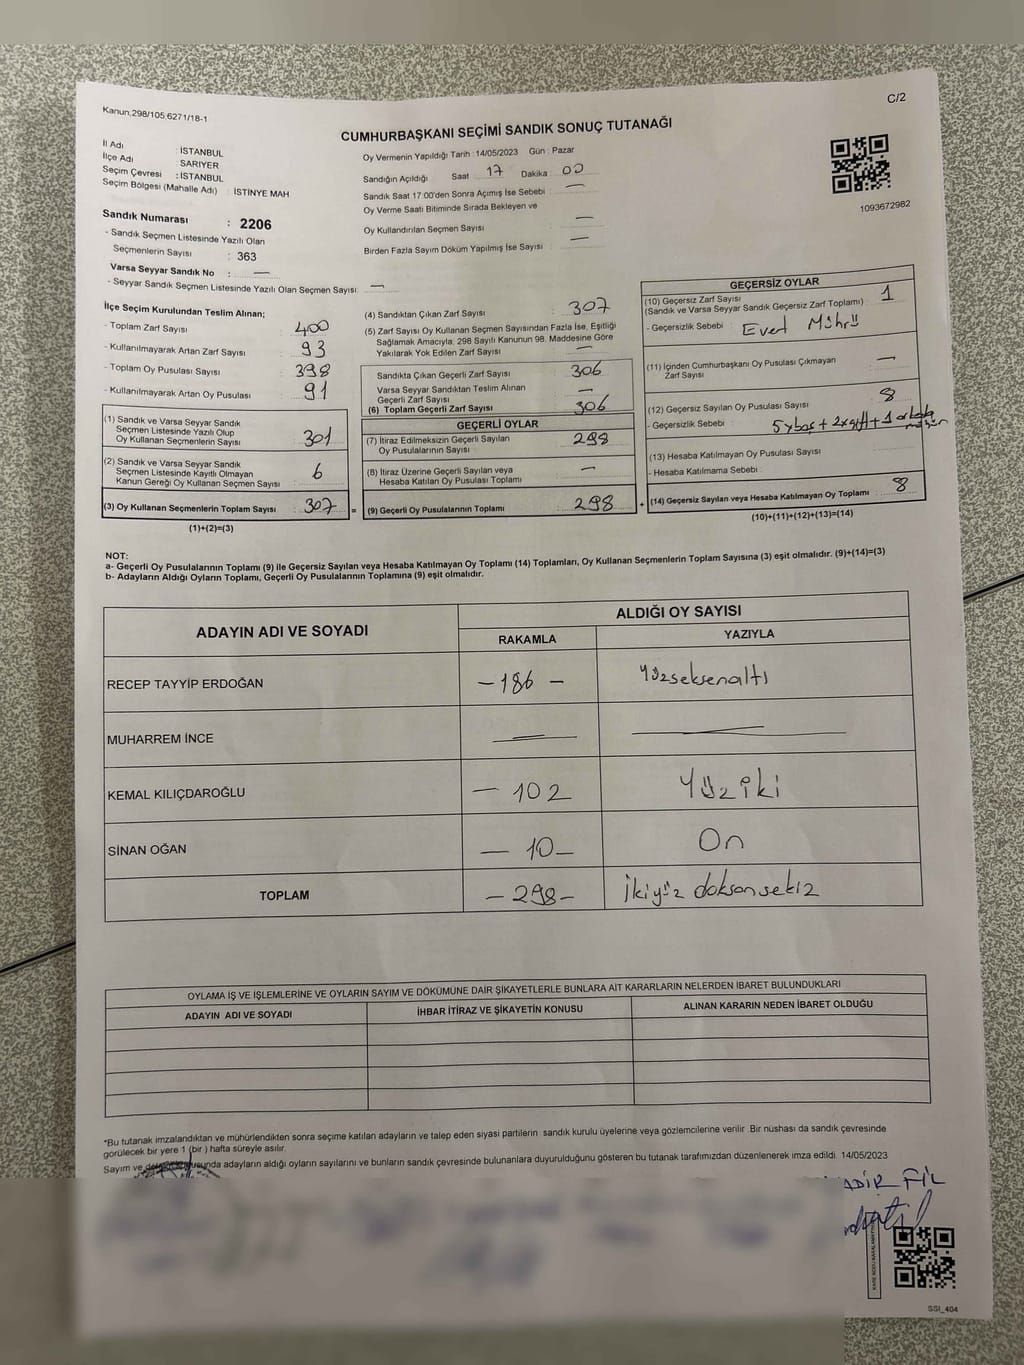 C/2
Kanun,298/105,6271/18-1
CUMHURBAŞKANI SEÇİMİ SANDIK SONUÇ TUTANAĞI
İl Adı : İSTANBUL
İlçe Adı : SARIYER
Seçim Çevresi : İSTANBUL
Seçim Bölgesi (Mahalle Adı) : İSTİNYE MAH
Sandık Numarası : 2206
- Sandık Seçmen Listesinde Yazılı Olan
Seçmenlerin Sayısı : 363
Varsa Seyyar Sandık No : —
- Seyyar Sandık Seçmen Listesinde Yazılı Olan Seçmen Sayısı: —
Oy Vermenin Yapıldığı Tarih : 14/05/2023 Gün : Pazar
Sandığın Açıldığı Saat 17 Dakika 00
Sandık Saat 17:00'den Sonra Açımış İse Sebebi —
Oy Verme Saati Bitiminde Sırada Bekleyen ve
Oy Kullandırılan Seçmen Sayısı —
Birden Fazla Sayım Döküm Yapılmış İse Sayısı —
1093672982
İlçe Seçim Kurulundan Teslim Alınan;
- Toplam Zarf Sayısı 400
- Kullanılmayarak Artan Zarf Sayısı 93
- Toplam Oy Pusulası Sayısı 398
- Kullanılmayarak Artan Oy Pusulası 91
(1) Sandık ve Varsa Seyyar Sandık
Seçmen Listesinde Yazılı Olup
Oy Kullanan Seçmenlerin Sayısı 301
(2) Sandık ve Varsa Seyyar Sandık
Seçmen Listesinde Kayıtlı Olmayan
Kanun Gereği Oy Kullanan Seçmen Sayısı 6
(3) Oy Kullanan Seçmenlerin Toplam Sayısı 307 =
(1)+(2)=(3)
(4) Sandıktan Çıkan Zarf Sayısı 307
(5) Zarf Sayısı Oy Kullanan Seçmen Sayısından Fazla İse, Eşitliği
Sağlamak Amacıyla, 298 Sayılı Kanunun 98. Maddesine Göre
Yakılarak Yok Edilen Zarf Sayısı —
Sandıkta Çıkan Geçerli Zarf Sayısı 306
Varsa Seyyar Sandıktan Teslim Alınan
Geçerli Zarf Sayısı —
(6) Toplam Geçerli Zarf Sayısı 306
GEÇERLİ OYLAR
(7) İtiraz Edilmeksizin Geçerli Sayılan
Oy Pusulalarının Sayısı 298
(8) İtiraz Üzerine Geçerli Sayılan veya
Hesaba Katılan Oy Pusulası Toplamı —
(9) Geçerli Oy Pusulalarının Toplamı 298 +
GEÇERSİZ OYLAR
(10) Geçersiz Zarf Sayısı 1
(Sandık ve Varsa Seyyar Sandık Geçersiz Zarf Toplamı)
- Geçersizlik Sebebi : Evet Mührü
(11) İçinden Cumhurbaşkanı Oy Pusulası Çıkmayan
Zarf Sayısı —
(12) Geçersiz Sayılan Oy Pusulası Sayısı 8
- Geçersizlik Sebebi 5xboş + 2xçift + 1
(13) Hesaba Katılmayan Oy Pusulası Sayısı
- Hesaba Katılmama Sebebi
(14) Geçersiz Sayılan veya Hesaba Katılmayan Oy Toplamı 8
(10)+(11)+(12)+(13)=(14)
NOT:
a- Geçerli Oy Pusulasının Toplamı (9) ile Geçersiz Sayılan veya Hesaba Katılmayan Oy Toplamı (14) Toplamları, Oy Kullanan Seçmenlerin Toplam Sayısına (3) eşit olmalıdır. (9)+(14)=(3)
b- Adayların Aldığı Oyların Toplamı, Geçerli Oy Pusulalarının Toplamına (9) eşit olmalıdır.
ADAYIN ADI VE SOYADI
ALDIĞI OY SAYISI
RAKAMLA YAZIYLA
RECEP TAYYİP ERDOĞAN — 186 — Yüzseksenaltı
MUHARREM İNCE — —
KEMAL KILIÇDAROĞLU — 102 Yüziki
SİNAN OĞAN — 10 — On
TOPLAM — 298 — İkiyüz doksansekiz
OYLAMA İŞ VE İŞLEMLERİNE VE OYLARIN SAYIM VE DÖKÜMÜNE DAİR ŞİKAYETLERLE BUNLARA AİT KARARLARIN NELERDEN İBARET BULUNDUKLARI
ADAYIN ADI VE SOYADI İHBAR İTİRAZ VE ŞİKAYETİN KONUSU ALINAN KARARIN NEDEN İBARET OLDUĞU
*Bu tutanak imzalandıktan ve mühürlendikten sonra seçime katılan adayların ve talep eden siyasi partilerin sandık kurulu üyelerine veya gözlemcilerine verilir. Bir nüshası da sandık çevresinde
görülecek bir yere 1 (bir ) hafta süreyle asılır.
Sayım ve adayların aldığı oyların sayılarını ve bunların sandık çevresinde bulunanlara duyurulduğunu gösteren bu tutanak tarafımızdan düzenlenerek imza edildi. 14/05/2023
ADİR FİL
SSI_404